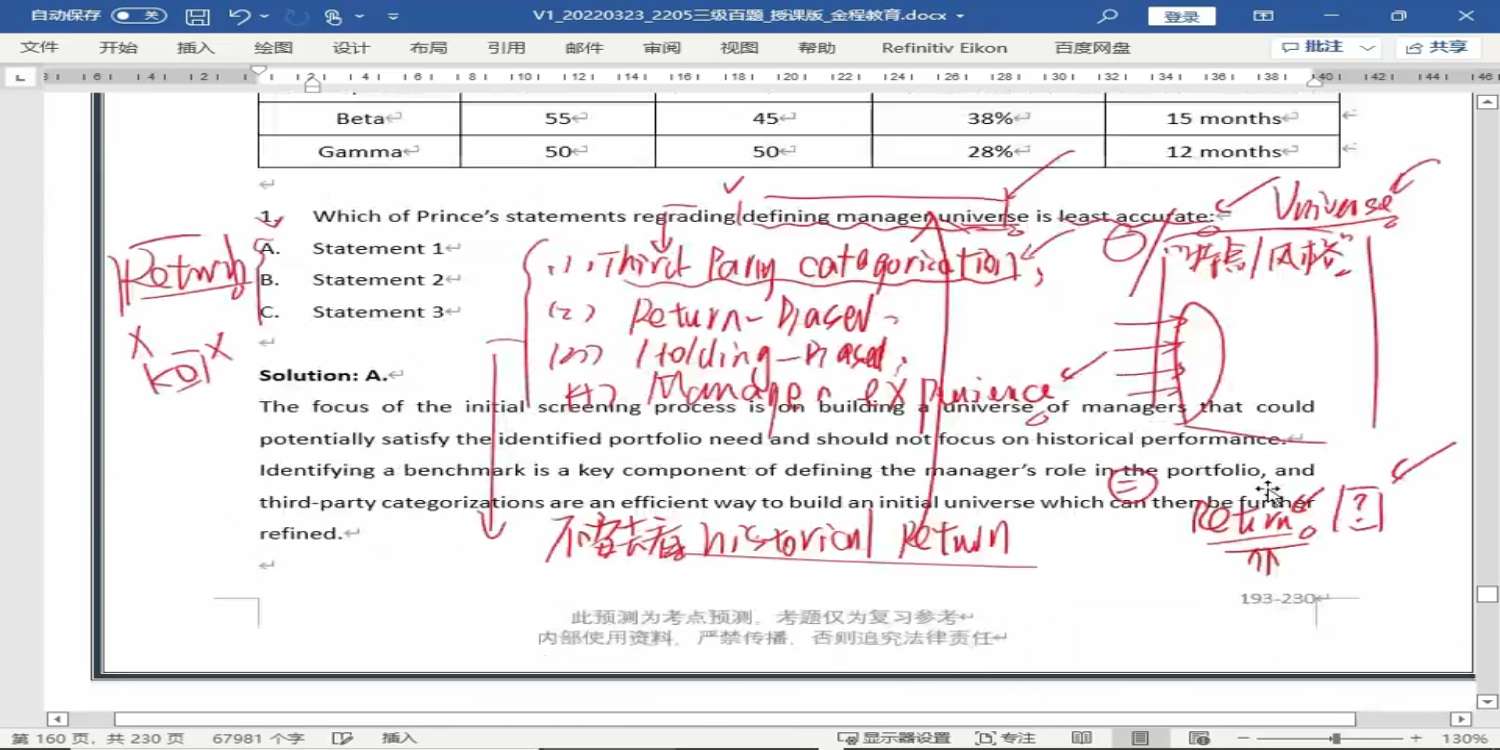 自动保存 关 V1_20220323_2205三级百题_授课版_金程教育.docx 登录
文件 开始 插入 绘图 设计 布局 引用 邮件 审阅 视图 帮助 Refinitiv Eikon 百度网盘 批注 共享
Beta 55 45 38% 15 months
Gamma 50 50 28% 12 months
1. Which of Prince's statements regrading defining manager universe is least accurate:
Universe
"特点/风格"
A. Statement 1
(1) Third Party categorization,
Return
B. Statement 2
(2) Return-Based
C. Statement 3
(3) Holding-Based,
KOL
(4) Manager experience
Solution: A.
The focus of the initial screening process is on building a universe of managers that could
potentially satisfy the identified portfolio need and should not focus on historical performance.
Identifying a benchmark is a key component of defining the manager's role in the portfolio, and
third-party categorizations are an efficient way to build an initial universe which can then be further
refined.
Return [?]
historical Return
193-230
此预测为考点预测，考题仅为复习参考
内部使用资料，严禁传播，否则追究法律责任
第 160 页，共 230 页 67981 个字 插入 显示器设置 专注 130%